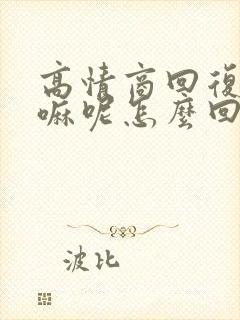 高情商回復
嘛呢怎麼回
波比